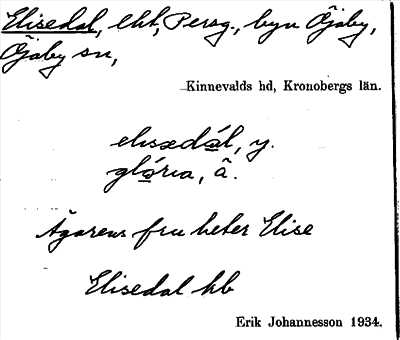 Elisedal, lht, Persg., byn Öjaby,
Öjaby sn,
Kinnevalds hd, Kronobergs län.
elisedál, y.
glória, â.
Ägarens fru heter Elise
Elisedal hb
Erik Johannesson 1934.